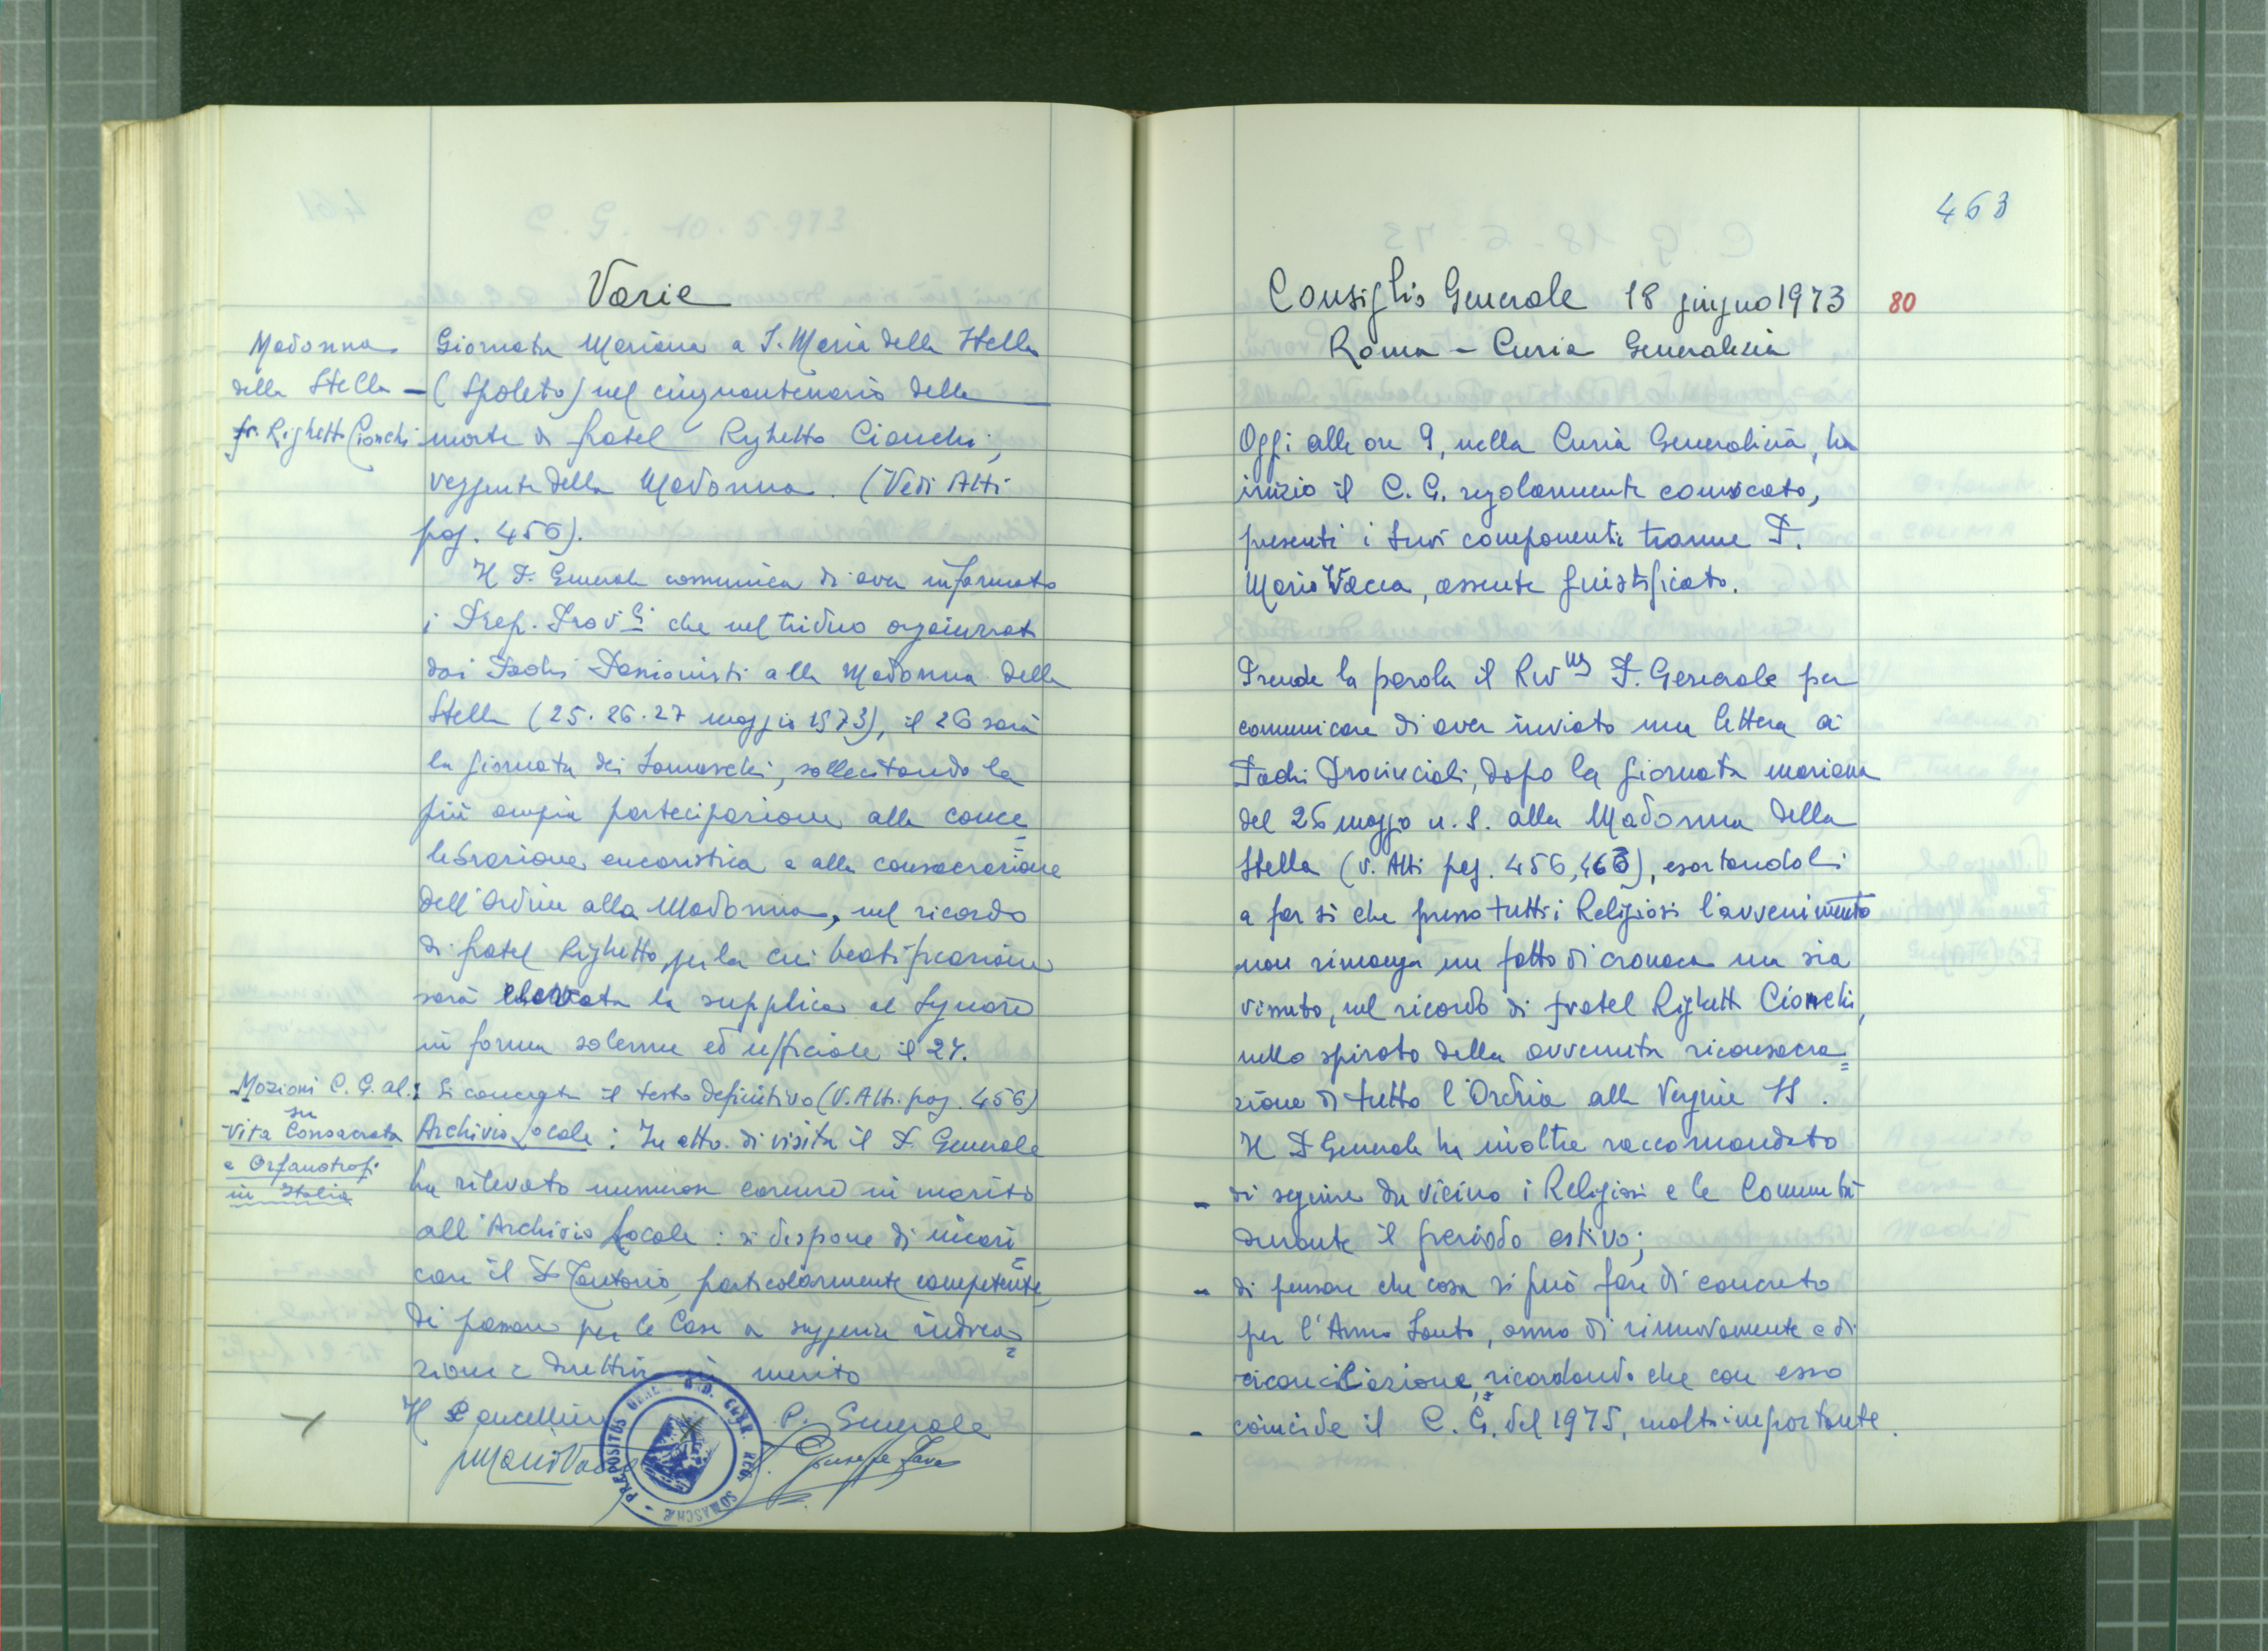 Varie
Madonna
della Stella –
fr. Righetto Cionchi
Giornata Mariana a S. Maria della Stella
(Spoleto) nel cinquantenario della
morte di fratel Righetto Cionchi,
veggente della Madonna. (Vedi Atti
pag. 456).
Il P. Generale comunica di aver informato
i Prep. Prov.li che nel triduo organizzato
dai Padri Passionisti alla Madonna della
Stella (25. 26. 27 maggio 1973), il 26 sarà
la giornata dei Somaschi, sollecitando la
più ampia partecipazione alla conce=
lebrazione eucaristica e alla consacrazione
dell'Ordine alla Madonna, nel ricordo
di fratel Righetto, per la cui beatificazione
sarà elevata la supplica al Signore
in forma solenne ed ufficiale il 27.
Mozioni C. G. al.:
su
Vita Consacrata
e Orfanotrof.
in Italia
Si consegna il testo definitivo (V. Atti. pag. 456)
Archivio Locale : In atto di visita il P. Generale
ha rilevato numerose carenze in merito
all'Archivio Locale : si dispone di incari=
care il P. Tentorio, particolarmente competente,
di passare per le Case a suggerire indica=
zioni e direttive in merito
Il Cancelliere
P. Generale
Mario Vacca
P. Giuseppe Fava
PRAEPOSITUS GENER. ORD. CLER. REG. SOMASCHAE
463
Consiglio Generale 18 giugno 1973
80
Roma – Curia Generalizia
Oggi alle ore 9, nella Curia Generalizia, ha
inizio il C. G. regolarmente convocato,
presenti i suoi componenti tranne P.
Mario Vacca, assente giustificato.
Prende la parola il Rev.mo P. Generale per
comunicare di aver inviato una lettera ai
Padri Provinciali, dopo la giornata mariana
del 26 maggio u. s. alla Madonna della
Stella (v. Atti pag. 456, 463), esortandoli
a far sì che presso tutti i Religiosi l'avvenimento
non rimanga un fatto di cronaca ma sia
vissuto, nel ricordo di fratel Righetto Cionchi,
nello spirito della avvenuta riconsacra=
zione di tutto l'Ordine alla Vergine SS.
Il P. Generale ha inoltre raccomandato
– di seguire da vicino i Religiosi e le Comunità
durante il periodo estivo;
– di pensare che cosa si può fare di concreto
per l'Anno Santo, anno di rinnovamento e di
riconciliazione, ricordando che con esso
– coincide il C. G. del 1975, molto importante.